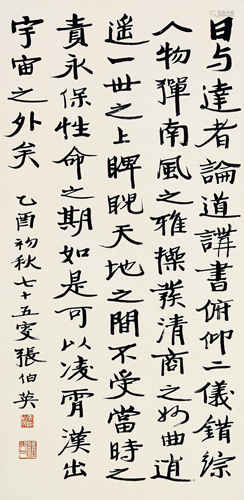 日与達者論道講書俯仰二儀錯綜
人物彈南風之雅操發清商之妙曲逍
遙一世之上睥睨天地之間不受當時之
責永保性命之期如是可以凌霄漢出
宇宙之外矣
乙酉初秋七十五叟張伯英